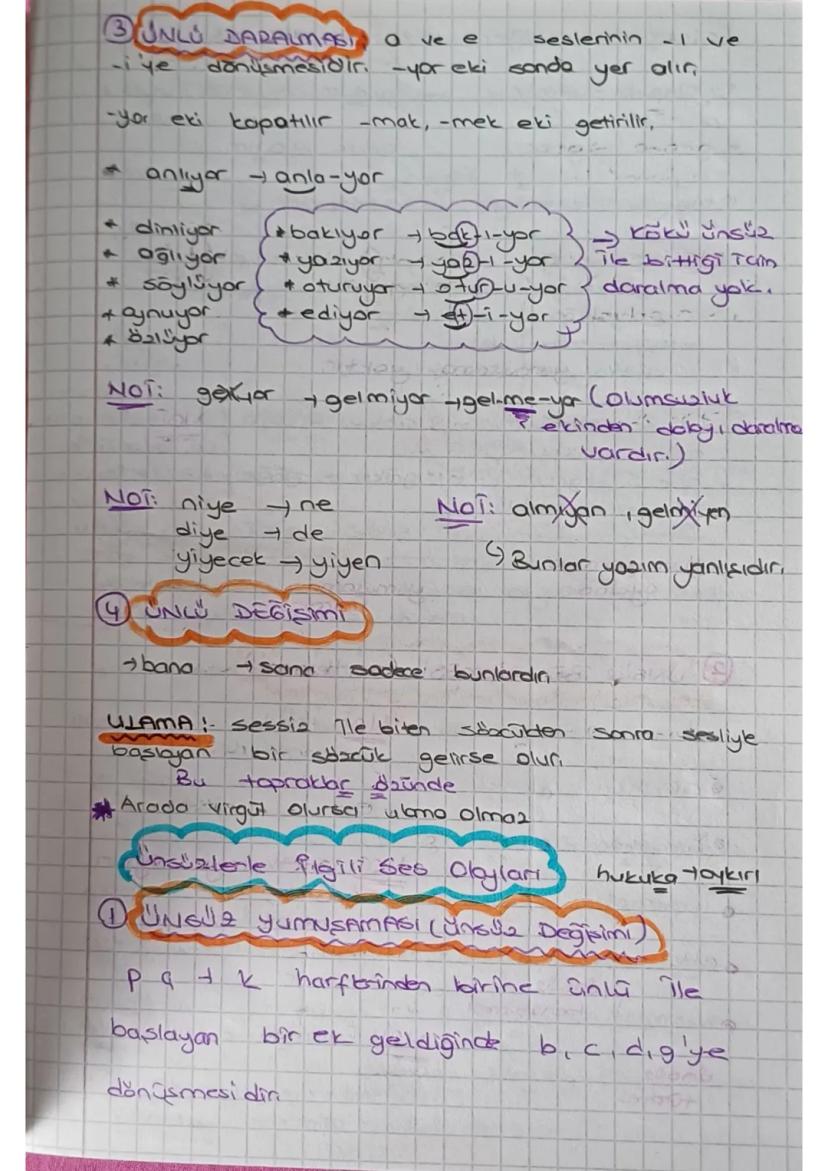 ③ ÜNLÜ DARALMASI: a ve e seslerinin -ı ve
-i'ye dönüşmesidir. -yor eki sonda yer alır.
-yor eki kapatılır -mak, -mek eki getirilir.
* anlıyor → anla-yor
* dinliyor
* ağlıyor
* söylüyor
* oynuyor
* özlüyor
* bakıyor → bak-ı-yor
* yazıyor → yaz-ı-yor
* oturuyor → otur-u-yor
* ediyor → et-i-yor
→ KÖKÜ ünsüz
ile bittiği için
daralma yok.
NOT: → gelmiyor → gel-me-yor (Olumsuzluk
ekinden dolayı daralma
vardır.)
NOT: niye → ne
diye → de
yiyecek → yiyen
NOT: almıyan, gelmiyen
↳ Bunlar yazım yanlışıdır.
④ ÜNLÜ DEĞİŞİMİ
→ bana → sana sadece bunlardır.
ULAMA: sessiz ile biten sözcükten sonra sesliyle
başlayan bir sözcük gelirse olur.
Bu topraklar özünde
* Arada virgül olursa ulama olmaz
Ünsüzlerle İlgili Ses Olayları
hukuka → aykırı
① ÜNSÜZ YUMUŞAMASI (Ünsüz Değişimi)
p ç t k harflerinden birine ünlü ile
başlayan bir ek geldiğinde b, c, d, g'ye
dönüşmesidir.